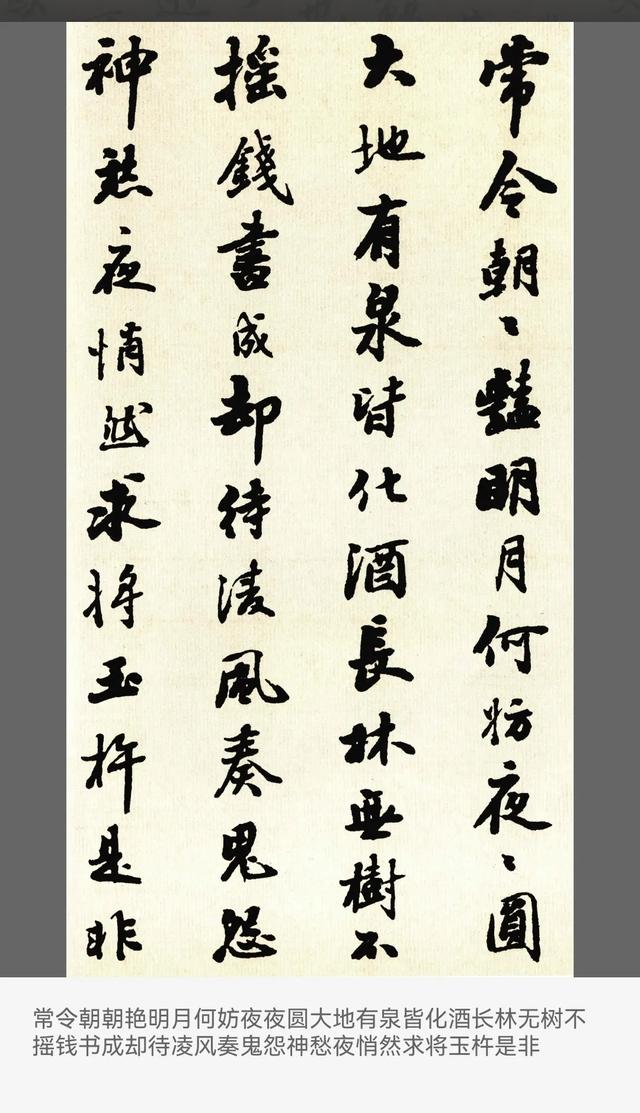 常令朝〻豔明月何妨夜〻圓
大地有泉皆化酒長林無樹不
摇錢書成却待凌風奏鬼怨
神愁夜悄然求將玉杵是非
常令朝朝艳明月何妨夜夜圆大地有泉皆化酒长林无树不
摇钱书成却待凌风奏鬼怨神愁夜悄然求将玉杵是非